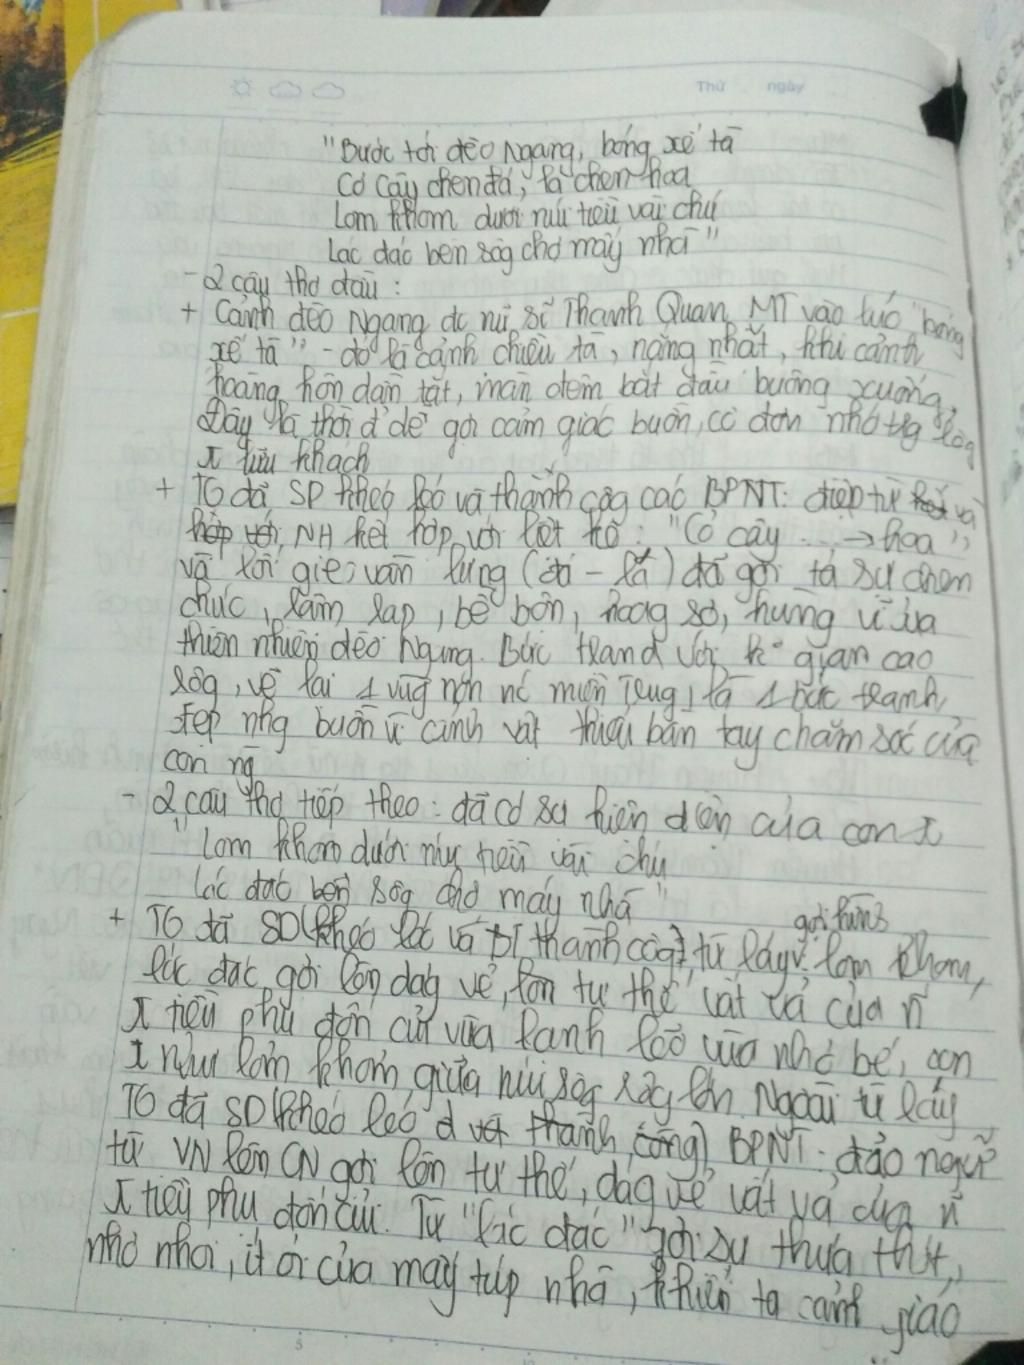 Thứ ngày
"Bước tới đèo Ngang, bóng xế tà
Cỏ cây chen đá, lá chen hoa
Lom khom dưới núi tiều vài chú
Lác đác bên sôg chợ mấy nhà"
- 2 câu thơ đầu :
+ Cảnh đèo Ngang đc nữ sĩ Thanh Quan MT vào lúc "bóng
xế tà" - đó là cảnh chiều tà, nắng nhạt, khi cảnh
hoàng hôn dần tắt, màn đêm bắt đầu buông xuống.
Đây là thời đ' dễ gợi cảm giác buồn, cô đơn nhớ tg lòg
lữu khách
+ TG đã SD khéo léo và thành côg các BPNT: điệp từ và
NH kết hợp với liệt kê : "Cỏ cây ... → hoa"
và lối gieo vần lưng (đá - lá) đã gợi tả sự chen
chúc, rậm rạp, bề bộn, hoag sơ, hùng vĩ của
thiên nhiên đèo Ngang. Bức tranh với k° gian cao
rôg, vẽ lại 1 vùg non nc miền Trug, là 1 bức tranh
đẹp nhg buồn vì cảnh vật thiếu bàn tay chăm sóc của
con ng
- 2 câu thơ tiếp theo : đã có sự hiện diện của con
"Lom khom dưới núi tiều vài chú
Lác đác bên sôg chợ mấy nhà"
gợi hình
+ TG đã SD (khéo léo và thành côg), từ láy: lom khom,
lác đác gợi lên dág vẻ, tư thế vất vả của n~
tiều phu đốn củi vừa lanh vừa nhỏ bé, con
như lom khom giữa núi sôg rôg lớn. Ngoài từ láy
TG đã SD (khéo léo thành công) BPNT: đảo ngữ
từ VN lên CN gợi lên tư thế, dág vẻ vất vả của n~
tiều phu đốn củi. Từ "lác đác" gợi sự thưa thớt,
nhỏ nhoi, ít ỏi của mấy túp nhà, khiến ta cảm giác